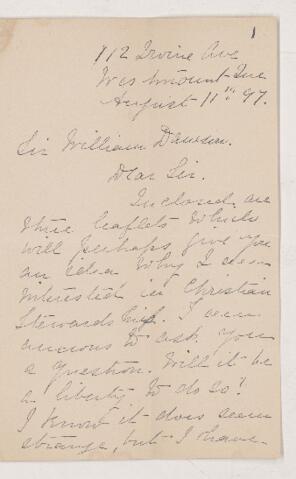 1
112 Irvine Ave
Westmount - Que
August 11th 97.
Sir William Dawson.
Dear Sir.
Inclosed are
three leaflets which
will perhaps give you
an idea why I am
interested in Christian
Stewardship. I am
anxious to ask you
a question. Will it be
a liberty to do so?
I know it does seem
strange, but I have